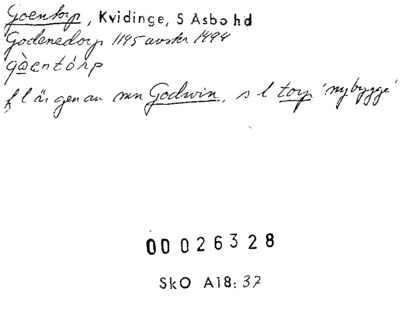 Goentorp, Kvidinge, S Åsbo hd
Godenedorp 1145 avskr 1494
gòentórp
fl är gen av mn Godwin, s l torp 'nybygge'
00 026328
SkO A18:37